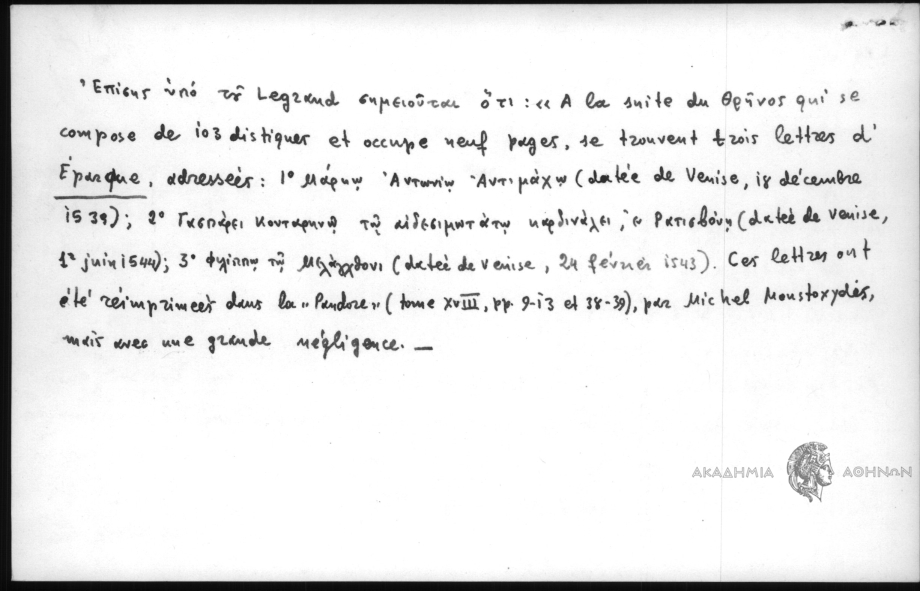 Ἐπίσης ὑπό τοῦ Legrand σημειοῦται ὅτι: «A la suite du Θρῆνος qui se
compose de 103 distiques et occupe neuf pages, se trouvent trois lettres d'
Éparque, adressées: 1º Μάρκῳ Ἀντωνίῳ Ἀντιμάχῳ (datée de Venise, 18 décembre
1539); 2º Γασπάρει Κονταρηνῷ τῷ αἰδεσιμωτάτῳ καρδινάλει, ἐν Ρατισβόνῃ (datée de Venise,
1er juin 1544); 3º Φιλίππῳ τῷ Μελάγχθονι (datée de Venise, 24 février 1543). Ces lettres ont
été réimprimées dans la «Pandore» (tome XVIII, pp. 9-13 et 38-39), par Michel Moustoxydès,
mais avec une grande négligence. —
ΑΚΑΔΗΜΙΑ ΑΘΗΝΩΝ